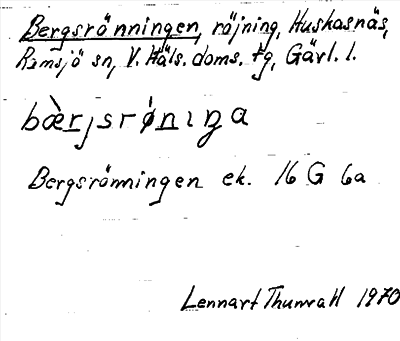 Bergsrönningen, röjning, Huskasnäs,
Ramsjö sn, V. Häls. doms. tg, Gävl. l.
bæ̀rjsrǿnıŋa
Bergsrönningen ek. 16 G 6a
Lennart Thunvall 1970